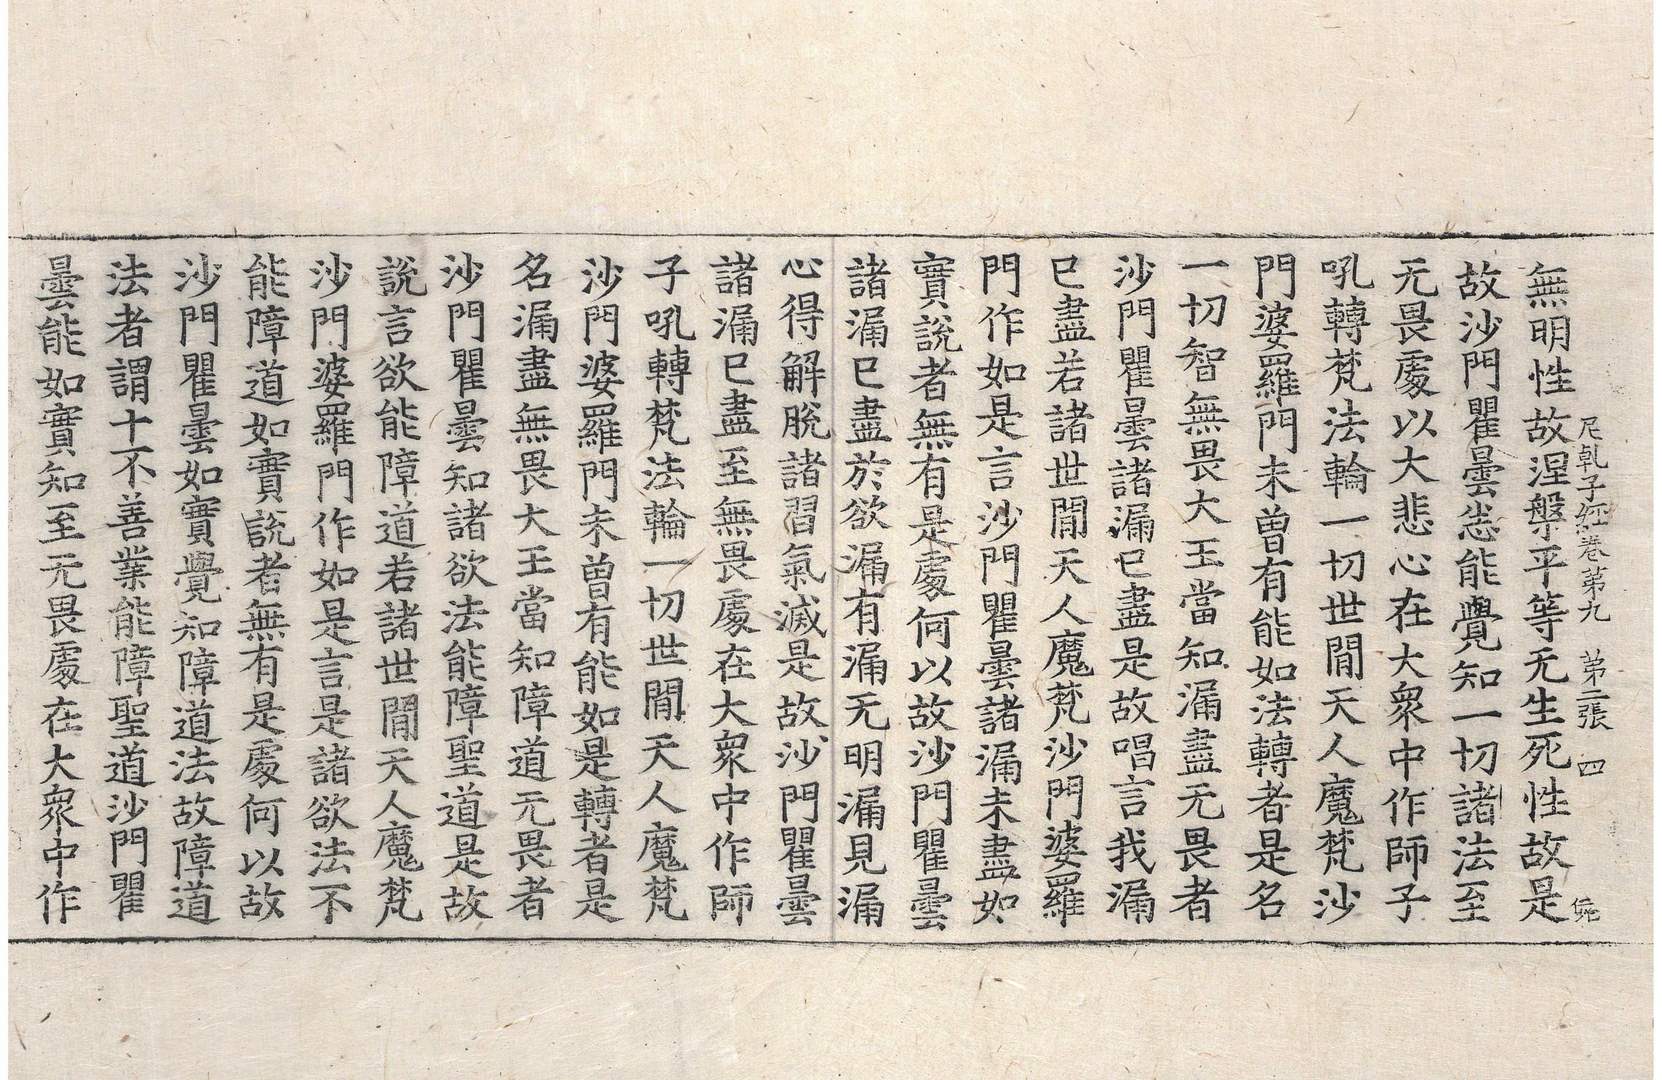 尼乹子經卷第九　第二張　四
無明性故涅槃平等无生死性故是
故沙門瞿曇悉能覺知一切諸法至
无畏處以大悲心在大衆中作師子
吼轉梵法輪一切世閒天人魔梵沙
門婆羅門未曾有能如法轉者是名
一切智無畏大王當知漏盡无畏者
沙門瞿曇諸漏已盡是故唱言我漏
已盡若諸世閒天人魔梵沙門婆羅
門作如是言沙門瞿曇諸漏未盡如
實說者無有是處何以故沙門瞿曇
諸漏已盡於欲漏有漏无明漏見漏
心得解脫諸習氣滅是故沙門瞿曇
諸漏已盡至無畏處在大衆中作師
子吼轉梵法輪一切世閒天人魔梵
沙門婆羅門未曾有能如是轉者是
名漏盡無畏大王當知障道无畏者
沙門瞿曇知諸欲法能障聖道是故
說言欲能障道若諸世閒天人魔梵
沙門婆羅門作如是言是諸欲法不
能障道如實說者無有是處何以故
沙門瞿曇如實覺知障道法故障道
法者謂十不善業能障聖道沙門瞿
曇能如實知至无畏處在大衆中作